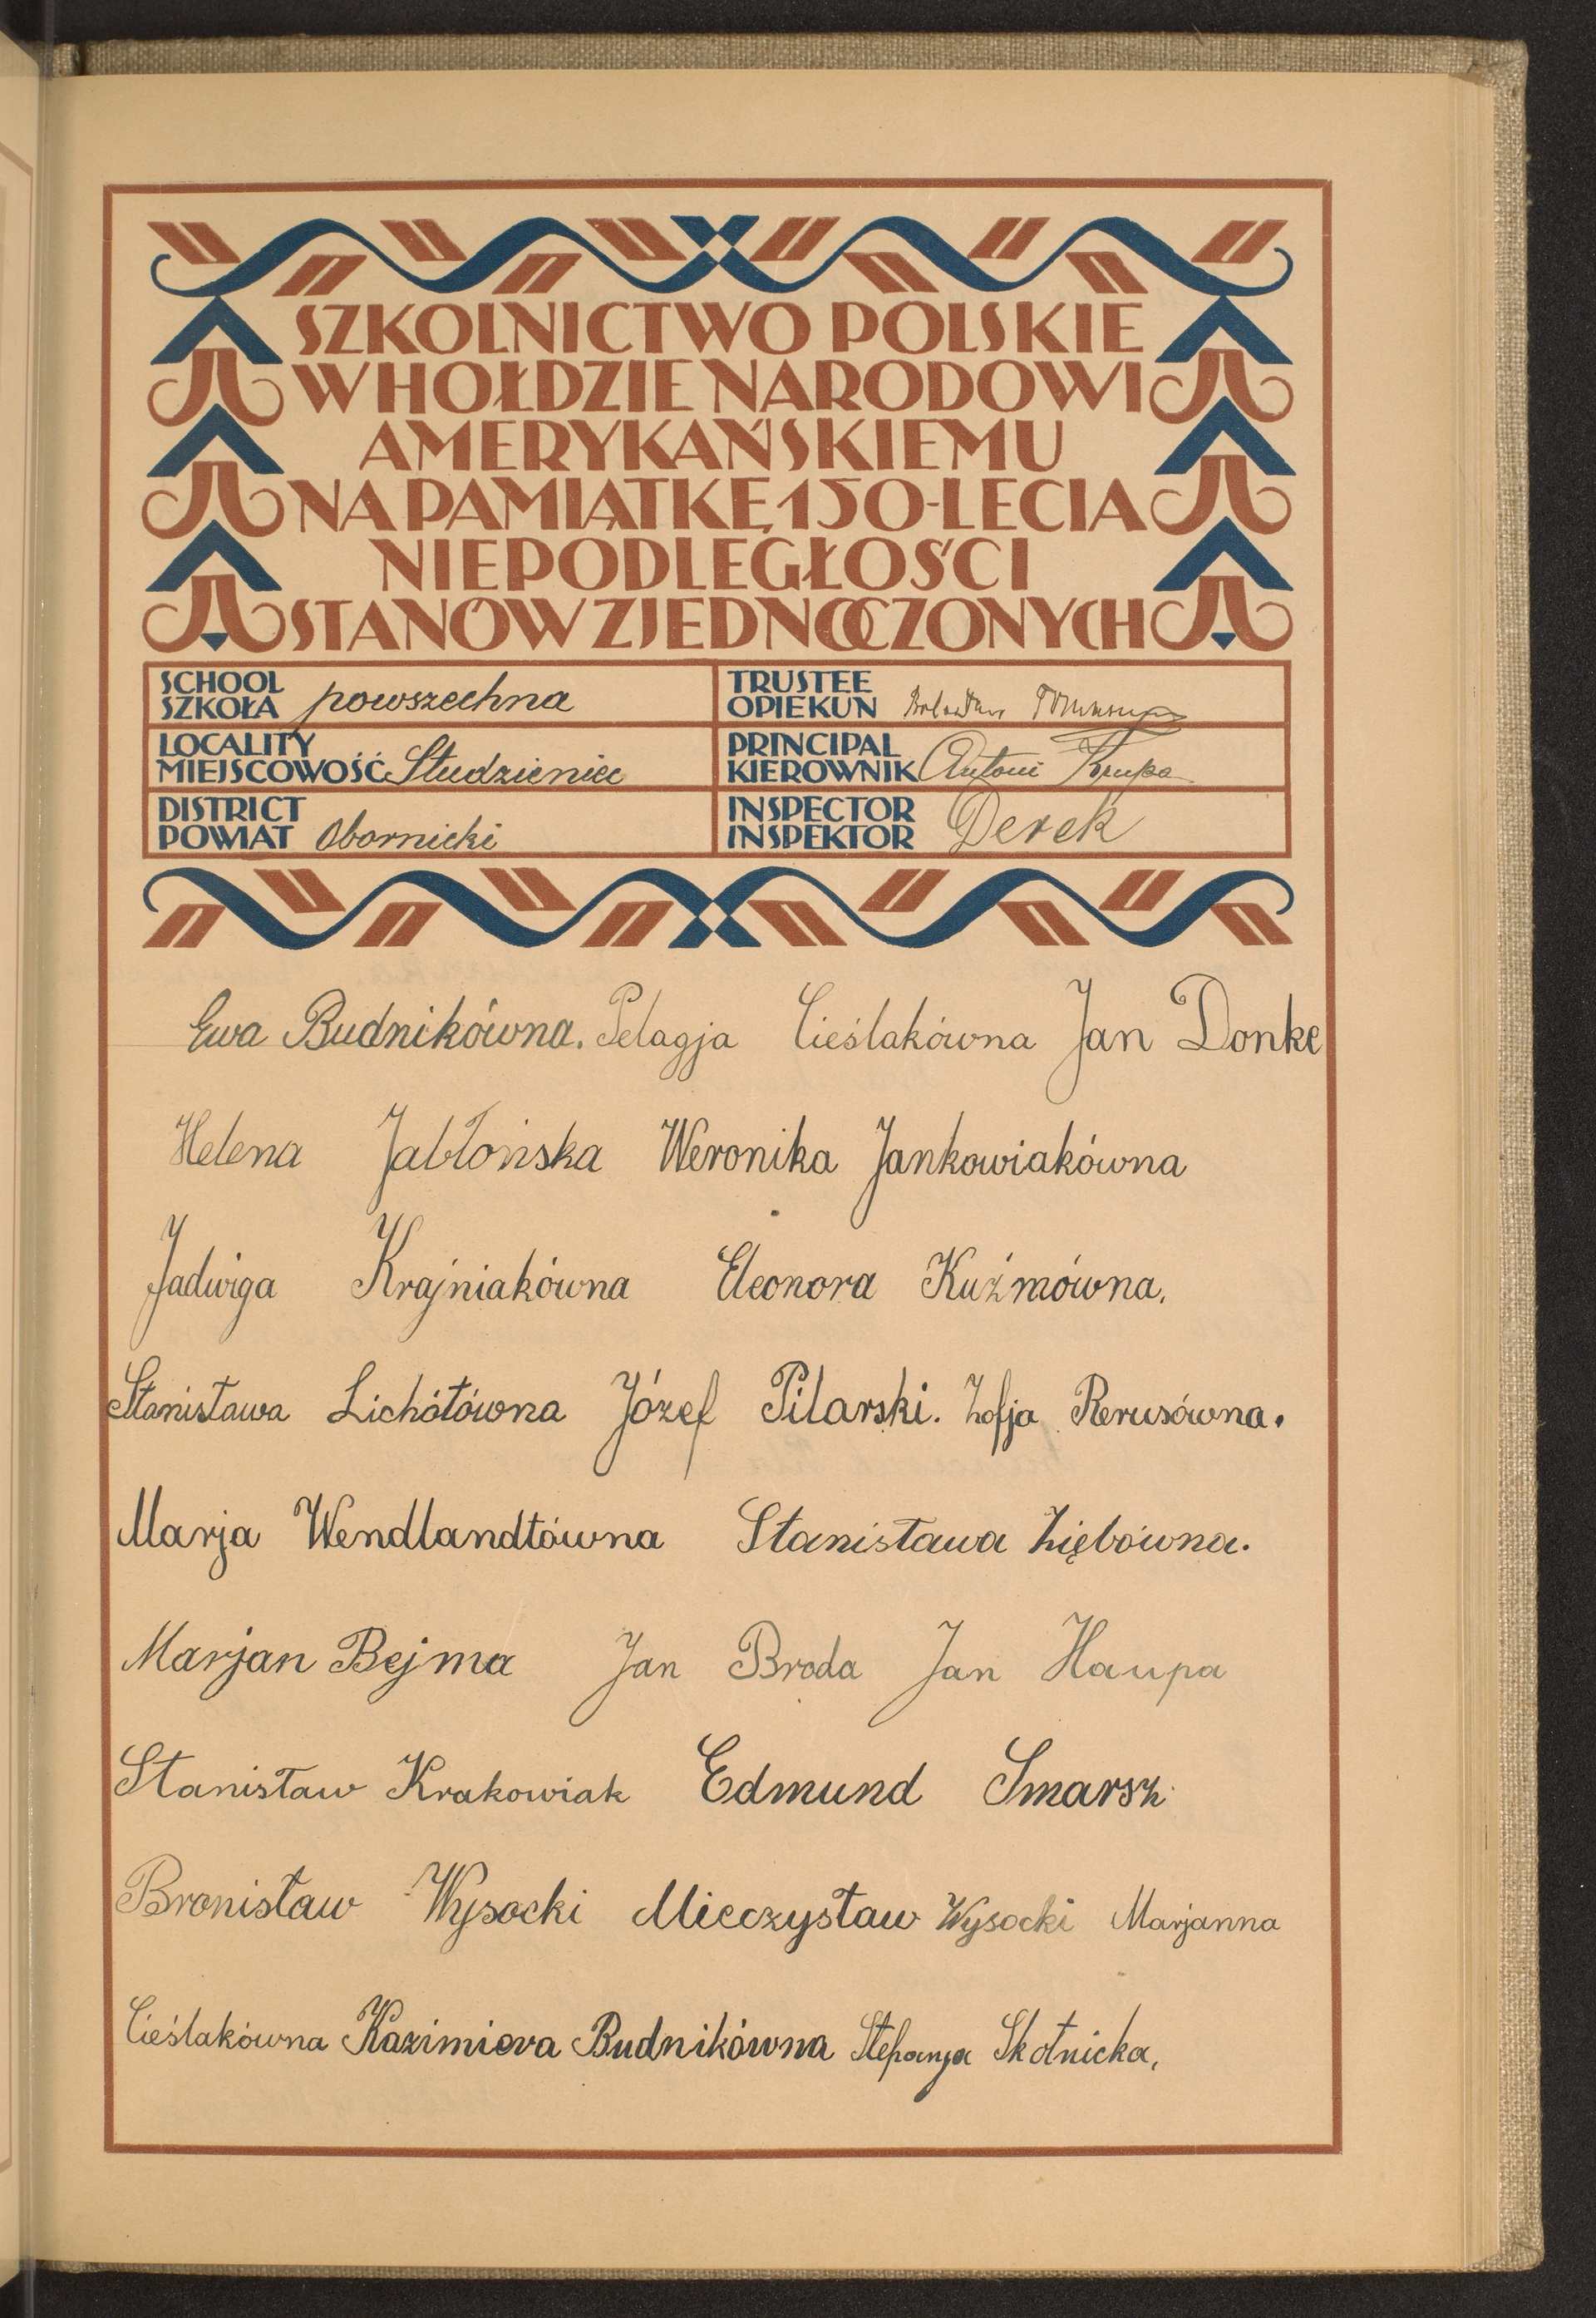 SZKOLNICTWO POLSKIE
W HOŁDZIE NARODOWI
AMERYKAŃSKIEMU
NA PAMIĄTKĘ 150-LECIA
NIEPODLEGŁOŚCI
STANÓW ZJEDNOCZONYCH
SCHOOL
SZKOŁA powszechna
TRUSTEE
OPIEKUN
LOCALITY
MIEJSCOWOŚĆ Studzieniec
PRINCIPAL
KIEROWNIK Antoni Krupa
DISTRICT
POWIAT Obornicki
INSPECTOR
INSPEKTOR Derek
Ewa Budnikówna. Pelagja Cieślakówna Jan Donke
Helena Jabłońska Weronika Jankowiakówna
Jadwiga Krajniakówna Eleonora Kuźmówna.
Stanisława Lichótówna Józef Pilarski. Zofja Rerusówna.
Marja Wendlandtówna Stanisława Ziębówna.
Marjan Bejma Jan Broda Jan Haupa
Stanisław Krakowiak Edmund Smarsz
Bronisław Wysocki Mieczysław Wysocki Marjanna
Cieślakówna Kazimiera Budnikówna Stefanja Skotnicka,